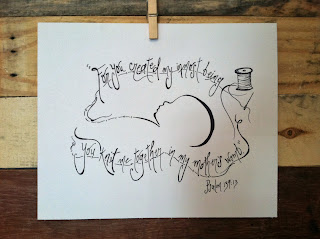 "For you created my inmost being
you knit me together in my mothers womb"
Psalm 139:13